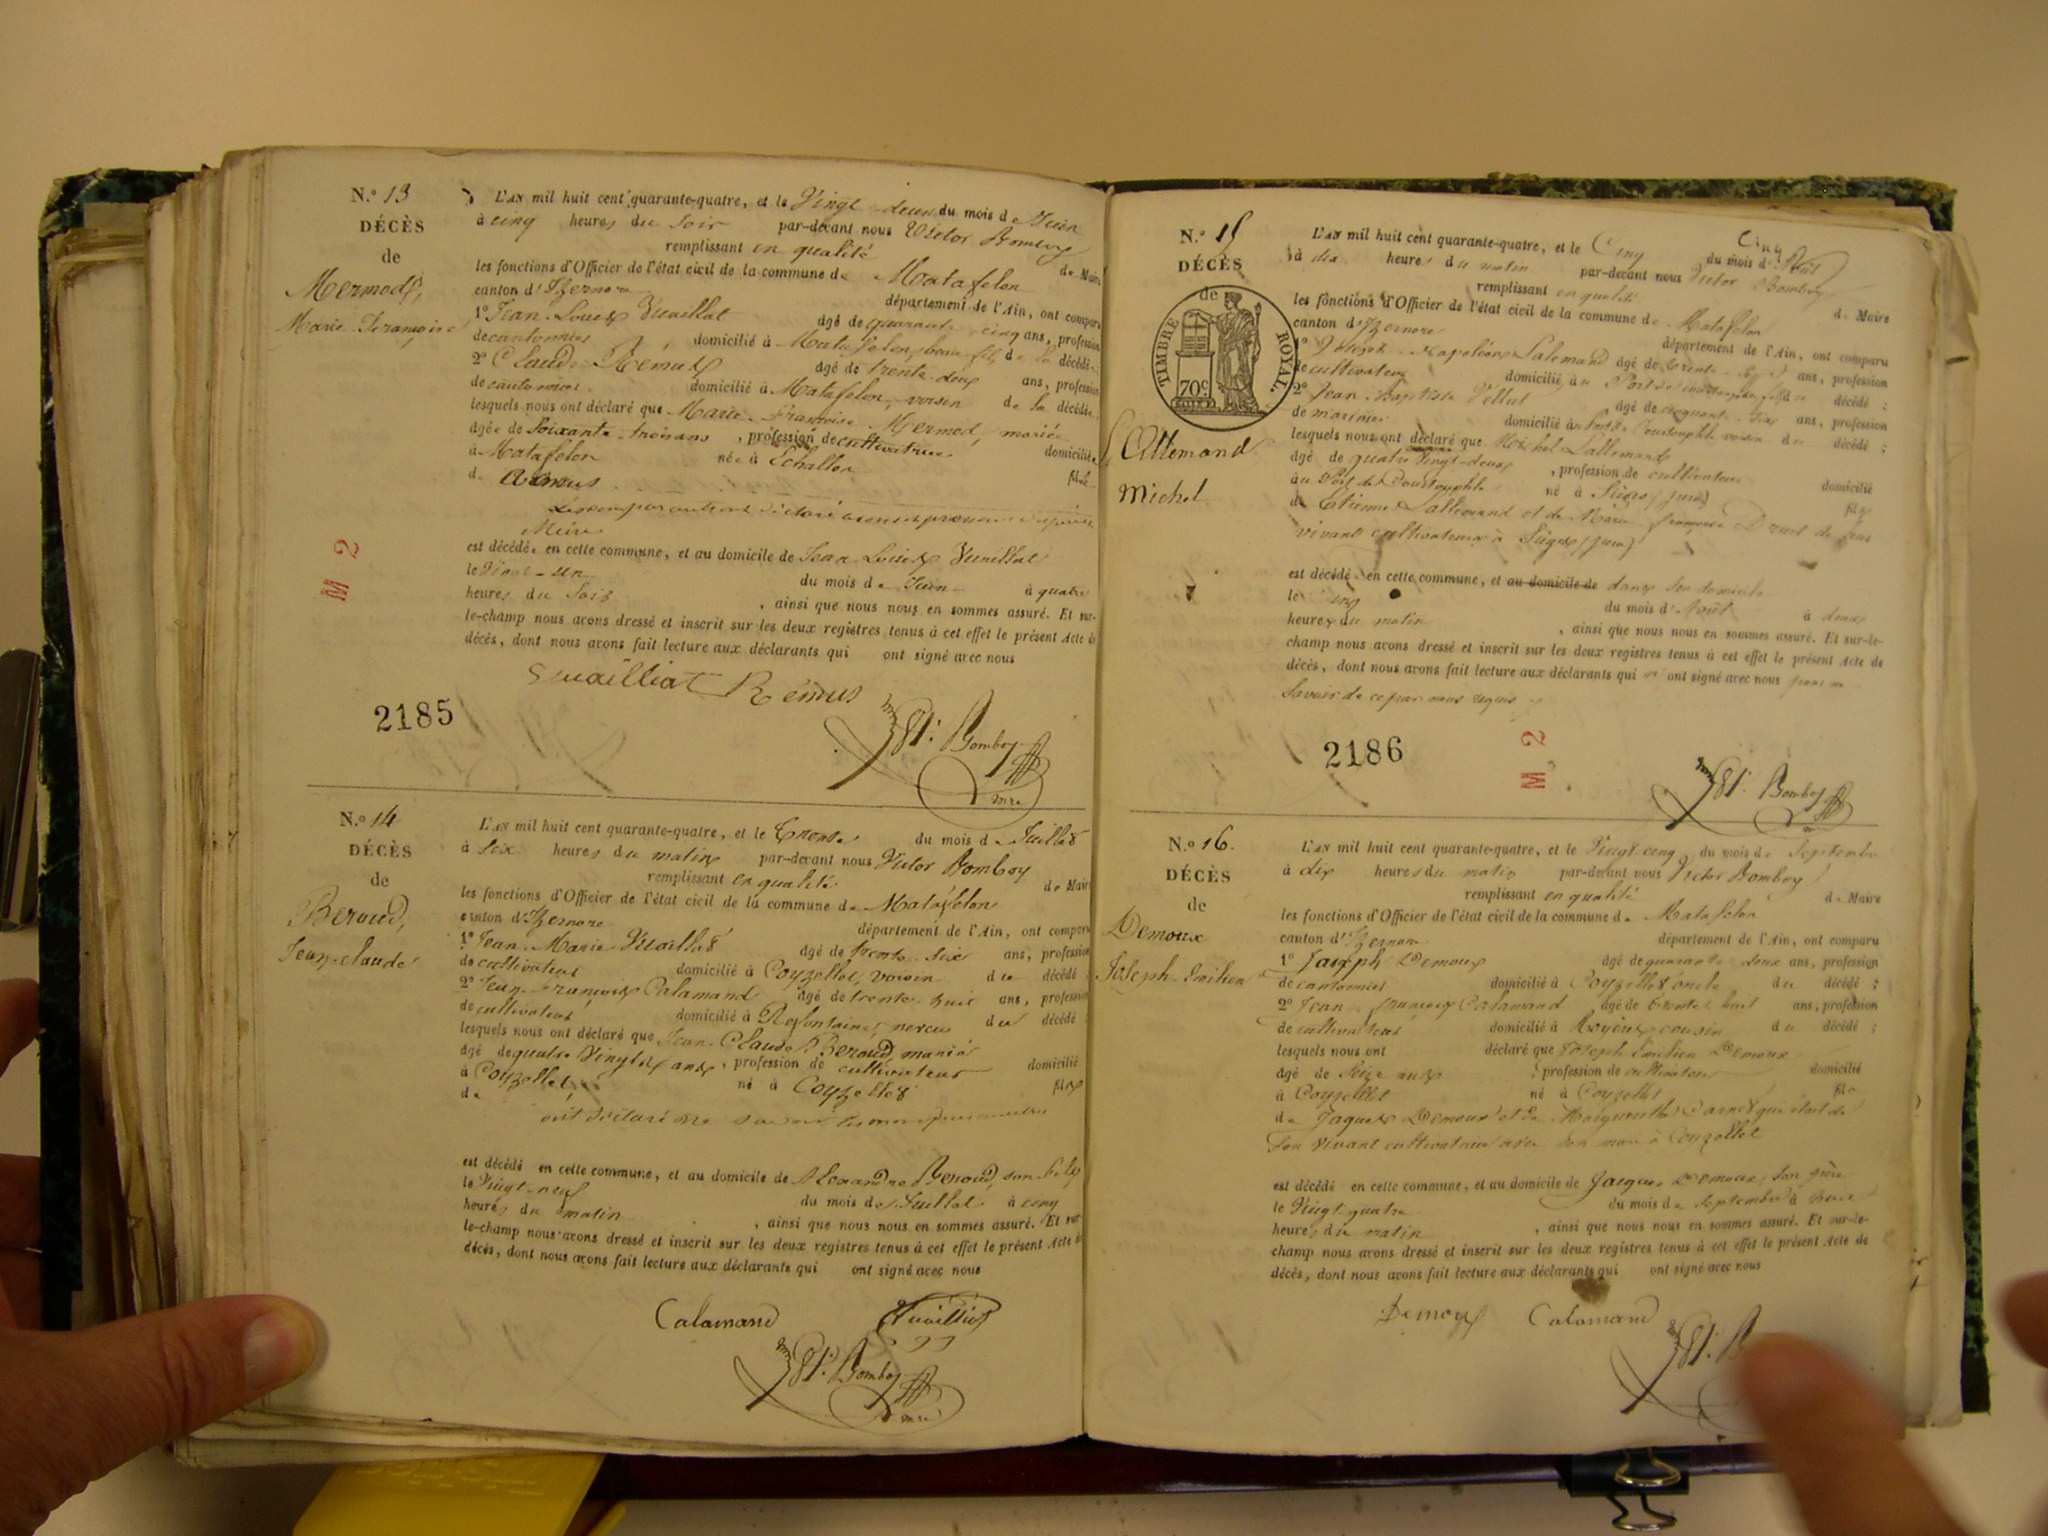 N.° 13
DÉCÈS
de
Mermod,
Marie Françoise
L'AN mil huit cent quarante-quatre, et le Vingt-deux du mois de Juin
à cinq heures du soir par-devant nous Victor Bomboy
remplissant en qualité de Maire
les fonctions d'Officier de l'état civil de la commune de Matafelon
canton d'Izernore département de l'Ain, ont comparu
1° Jean Louis Vuaillat âgé de quarante cinq ans, profession
de cantonnier domicilié à Matafelon, beau-fils de la décédée
2° Claude Rémus âgé de trente-deux ans, profession
de cantonnier domicilié à Matafelon, voisin de la décédée,
lesquels nous ont déclaré que Marie-Françoise Mermod, mariée
âgée de soixante-trois ans, profession de cultivatrice domiciliée
à Matafelon née à Echallon fille
de
Les comparants ont déclaré
est décédée en cette commune, et au domicile de Jean Louis Vuaillat
le Vingt-un du mois de Juin à quatre
heures du soir, ainsi que nous nous en sommes assuré. Et sur-
le-champ nous avons dressé et inscrit sur les deux registres tenus à cet effet le présent Acte de
décès, dont nous avons fait lecture aux déclarants qui ont signé avec nous
Vuailliat Rémus
Bomboy
mre
2185
M 2
N.° 14
DÉCÈS
de
Beroud,
Jean-claude
L'AN mil huit cent quarante-quatre, et le Trente du mois de Juillet
à six heures du matin par-devant nous Victor Bomboy
remplissant en qualité de Maire
les fonctions d'Officier de l'état civil de la commune de Matafelon
canton d'Izernore département de l'Ain, ont comparu
1° Jean-Marie Vuaillat âgé de trente-six ans, profession
de cultivateur domicilié à Coyzellet, voisin du décédé
2° Jean-François Calamand âgé de trente-huit ans, profession
de cultivateur domicilié à neveu du décédé
lesquels nous ont déclaré que Jean-Claude Beroud, marié
âgé de quatre Vingt ans, profession de cultivateur domicilié
à Coyzellet, né à Coyzellet fils
de
est décédé en cette commune, et au domicile de Alexandre Beroud, son fils
le Vingt-neuf du mois de Juillet à cinq
heures du matin, ainsi que nous nous en sommes assuré. Et sur-
le-champ nous avons dressé et inscrit sur les deux registres tenus à cet effet le présent Acte de
décès, dont nous avons fait lecture aux déclarants qui ont signé avec nous
Calamand Vuaillat
Bomboy
mre
N.° 15
DÉCÈS
de
TIMBRE ROYAL
70c.
Lallemand
Michel
L'AN mil huit cent quarante-quatre, et le Cinq du mois d'Août
à dix heures du matin par-devant nous Victor Bomboy
remplissant en qualité de Maire
les fonctions d'Officier de l'état civil de la commune de Matafelon
canton d'Izernore département de l'Ain, ont comparu
1° Joseph-Napoléon Lalemand âgé de trente ans, profession
de cultivateur domicilié au Port fils du décédé;
2° Jean-Baptiste âgé de cinquante ans, profession
de marinier domicilié au voisin du décédé;
lesquels nous ont déclaré que Michel Lallemand
âgé de quatre Vingt-deux, profession de cultivateur domicilié
au Port né à (Jura) fils
de Etienne Lallemand et de Marie-françoise de leur
vivant cultivateurs à (Jura)
est décédé en cette commune, et au domicile de dans son domicile
le cinq du mois d'Août à deux
heures du matin, ainsi que nous nous en sommes assuré. Et sur-le-
champ nous avons dressé et inscrit sur les deux registres tenus à cet effet le présent Acte de
décès, dont nous avons fait lecture aux déclarants qui n'ont signé avec nous pour ne
savoir de ce par nous requis
2186
M 2
Bomboy
N.° 16.
DÉCÈS
de
Demoux
Joseph-Emilien
L'AN mil huit cent quarante-quatre, et le Vingt-cinq du mois de Septembre
à dix heures du matin par-devant nous Victor Bomboy
remplissant en qualité de Maire
les fonctions d'Officier de l'état civil de la commune de Matafelon
canton d'Izernore département de l'Ain, ont comparu
1° Joseph Demoux âgé de quarante-deux ans, profession
de cantonnier domicilié à Coyzellet oncle du décédé;
2° Jean-françois Calamand âgé de trente-huit ans, profession
de cultivateur domicilié à cousin du décédé;
lesquels nous ont déclaré que Joseph Emilien Demoux
âgé de seize ans, profession de cultivateur domicilié
à Coyzellet né à Coyzellet fils
de Jaques Demoux et de Marguerite qui était de
son vivant cultivateur avec son mari à Coyzellet
est décédé en cette commune, et au domicile de Jacques Demoux, son père
le Vingt quatre du mois de Septembre à
heures du matin, ainsi que nous nous en sommes assuré. Et sur-le-
champ nous avons dressé et inscrit sur les deux registres tenus à cet effet le présent Acte de
décès, dont nous avons fait lecture aux déclarants qui ont signé avec nous
Demoux Calamand